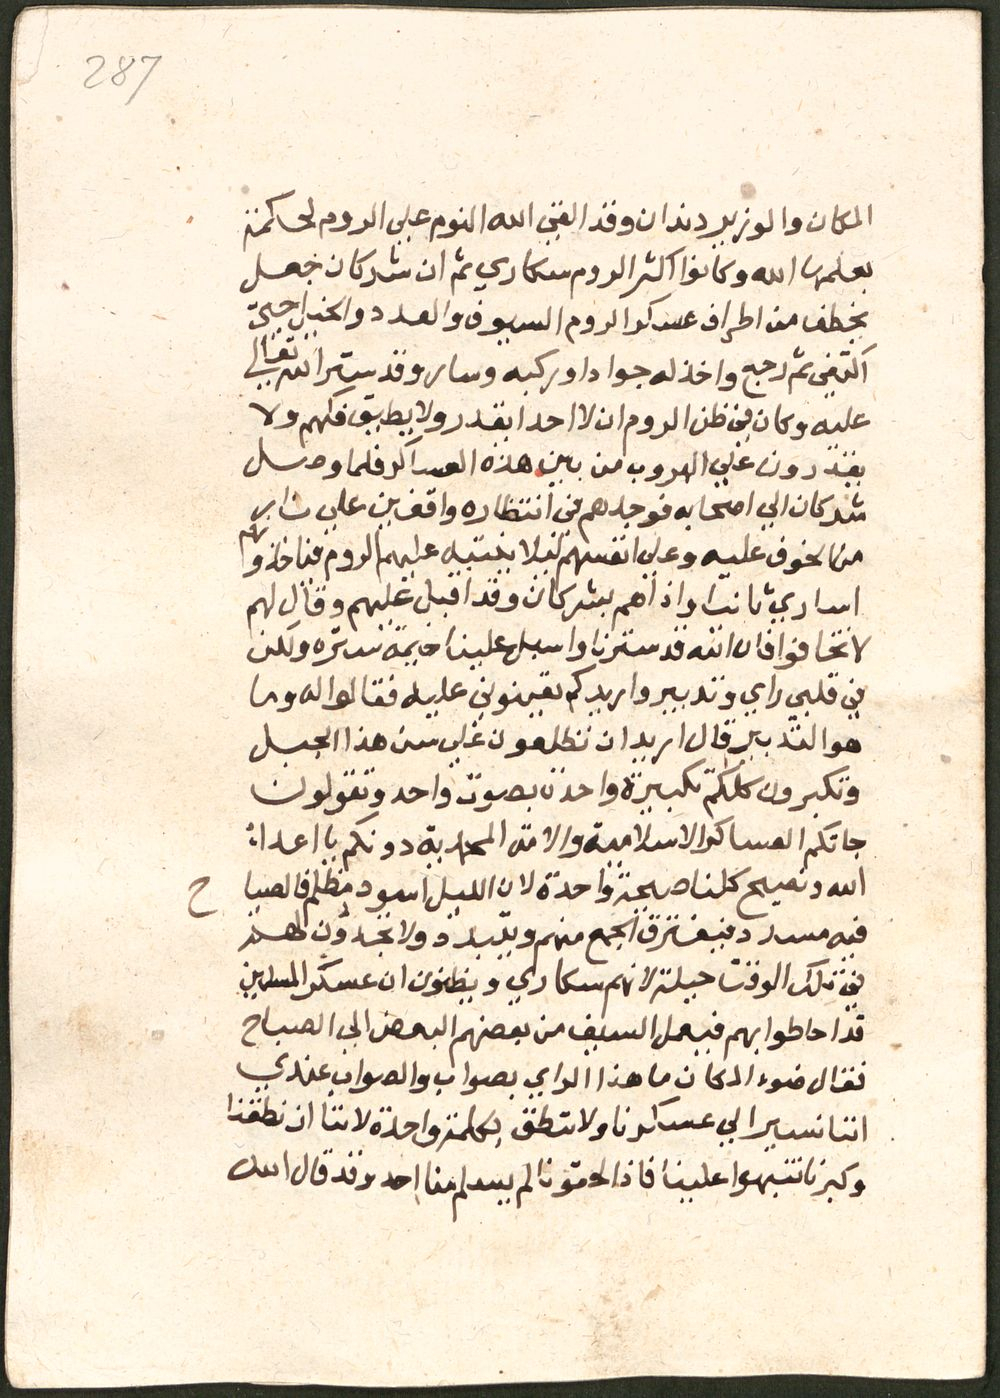 287
المكان والوزير دندان وقد القى الله النوم على الروم لحكمة
يعلمها الله وكانوا اكثر الروم سكارى ثم ان شركان جعل
يخطف من اطراف عسكر الروم السيوف والعدد والخيل حتى
اكتفى ثم رجع واخذ له جوادا وركبه وسار وقد ستر الله تعالى
عليه وكان في ظن الروم ان لا احدا يقدر ولا يطيق فكهم ولا
يقتدرون على الهروب من بين هذه العساكر فلما وصل
شركان الى اصحابه فوجدهم في انتظاره واقفين على نار
من الخوف عليه وعلى انفسهم ليلا ينتبه عليهم الروم فياخذوهم
اسارى ثانيا واذا هم بشركان وقد اقبل عليهم وقال لهم
لا تخافوا فان الله قد سترنا واسبل علينا خيمة ستره ولكن
في قلبي راي وتدبير واريدكم تعينوني عليه فقالوا له وما
هو التدبير قال اريد ان تطلعون على سن هذا الجبل
وتكبرون كلكم تكبيرة واحدة بصوت واحد وتقولون
جاتكم العساكر الاسلامية والامة المحمدية دونكم يا اعداء
الله ونصيح كلنا صيحة واحدة لان الليل اسود مظلم فالصياح
فيه مسدد فيفترق الجمع منهم ويتبدد ولا يجدون لهم
في تلك الوقت حيلة لانهم سكارى ويظنون ان عسكر المسلمين
قد احاطوا بهم فيعمل السيف من بعضهم البعض الى الصباح
فقال ضوء المكان ما هذا الراي بصواب والصواب عندي
اننا نسير الى عسكرنا ولا ننطق بكلمة واحدة لاننا ان نطقنا
وكبرنا تنبهوا علينا فاذا لحقونا لم يسلم منا احد وقد قال الله